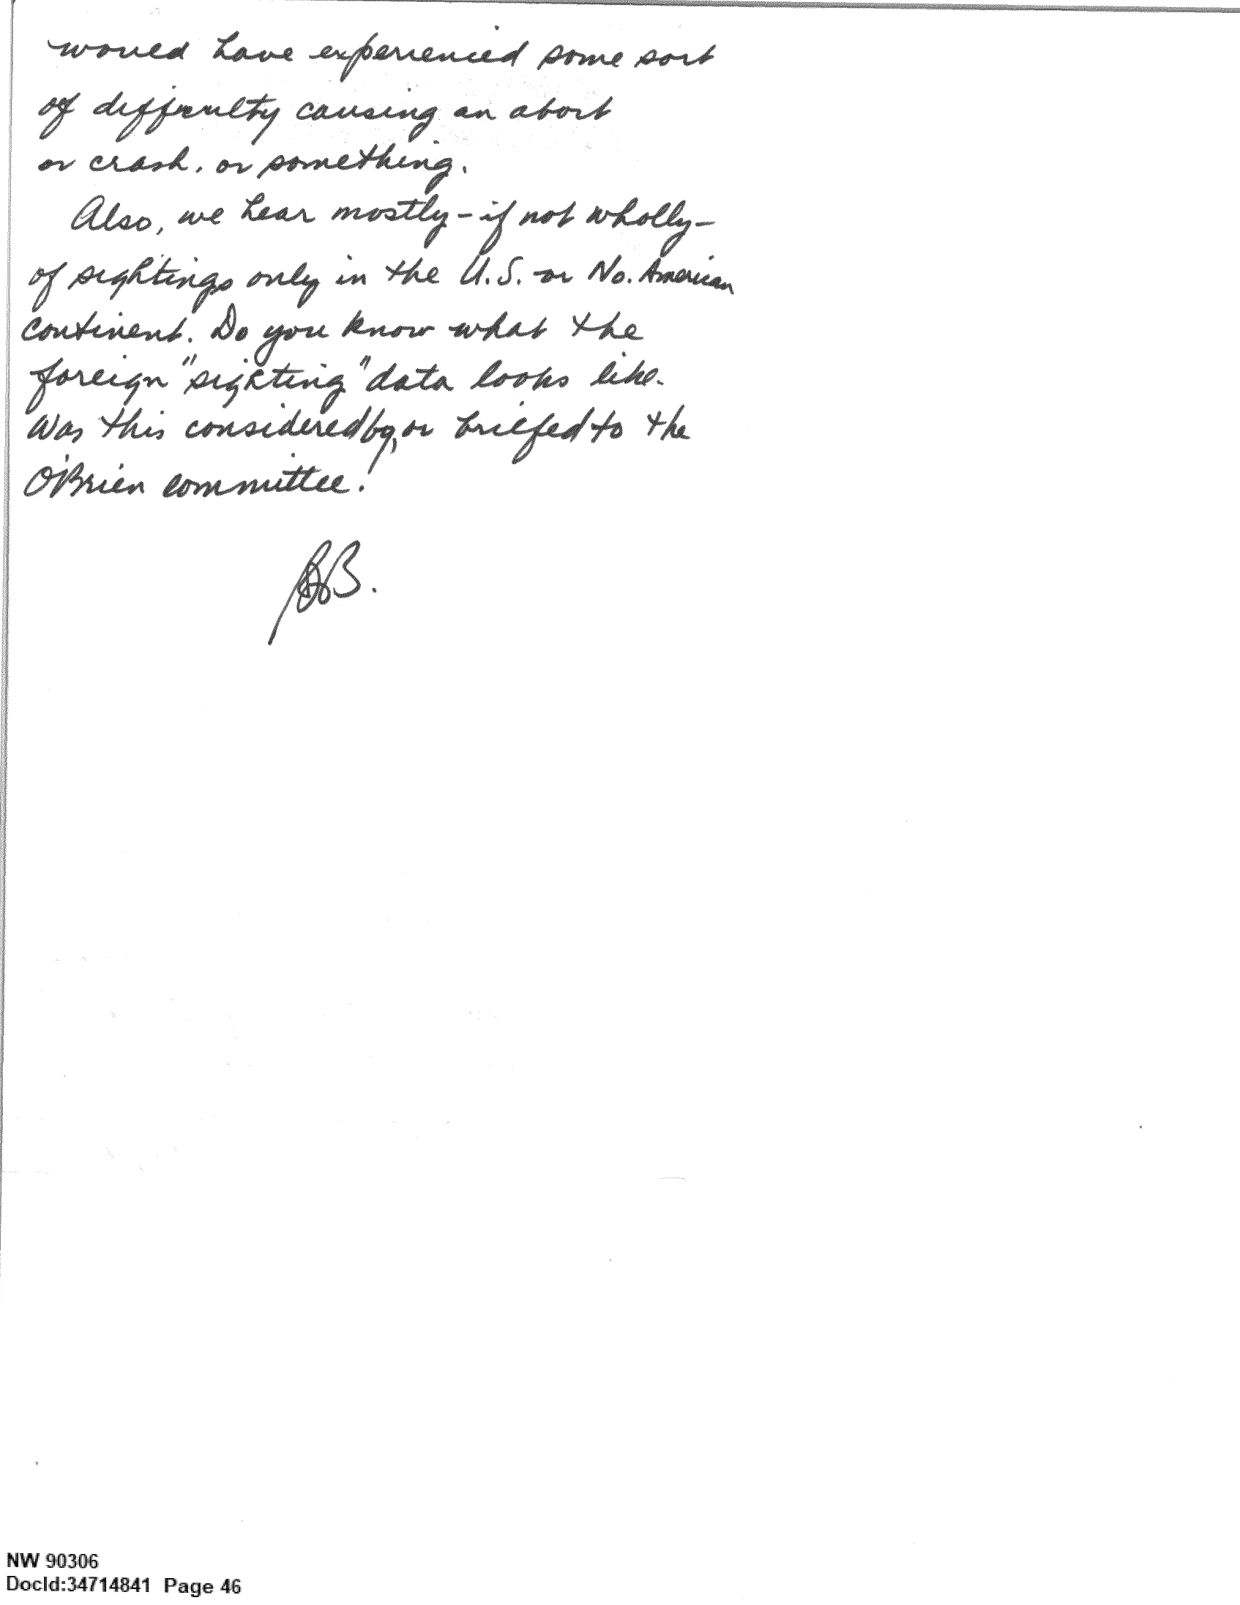 would have experienced some sort
of difficulty causing an abort
or crash, or something.
Also, we hear mostly - if not wholly -
of sightings only in the U.S. or No. American
continent. Do you know what the
foreign "sighting" data looks like.
Was this considered by, or briefed to the
O'Brien committee?
NW 90306
DocId:34714841 Page 46